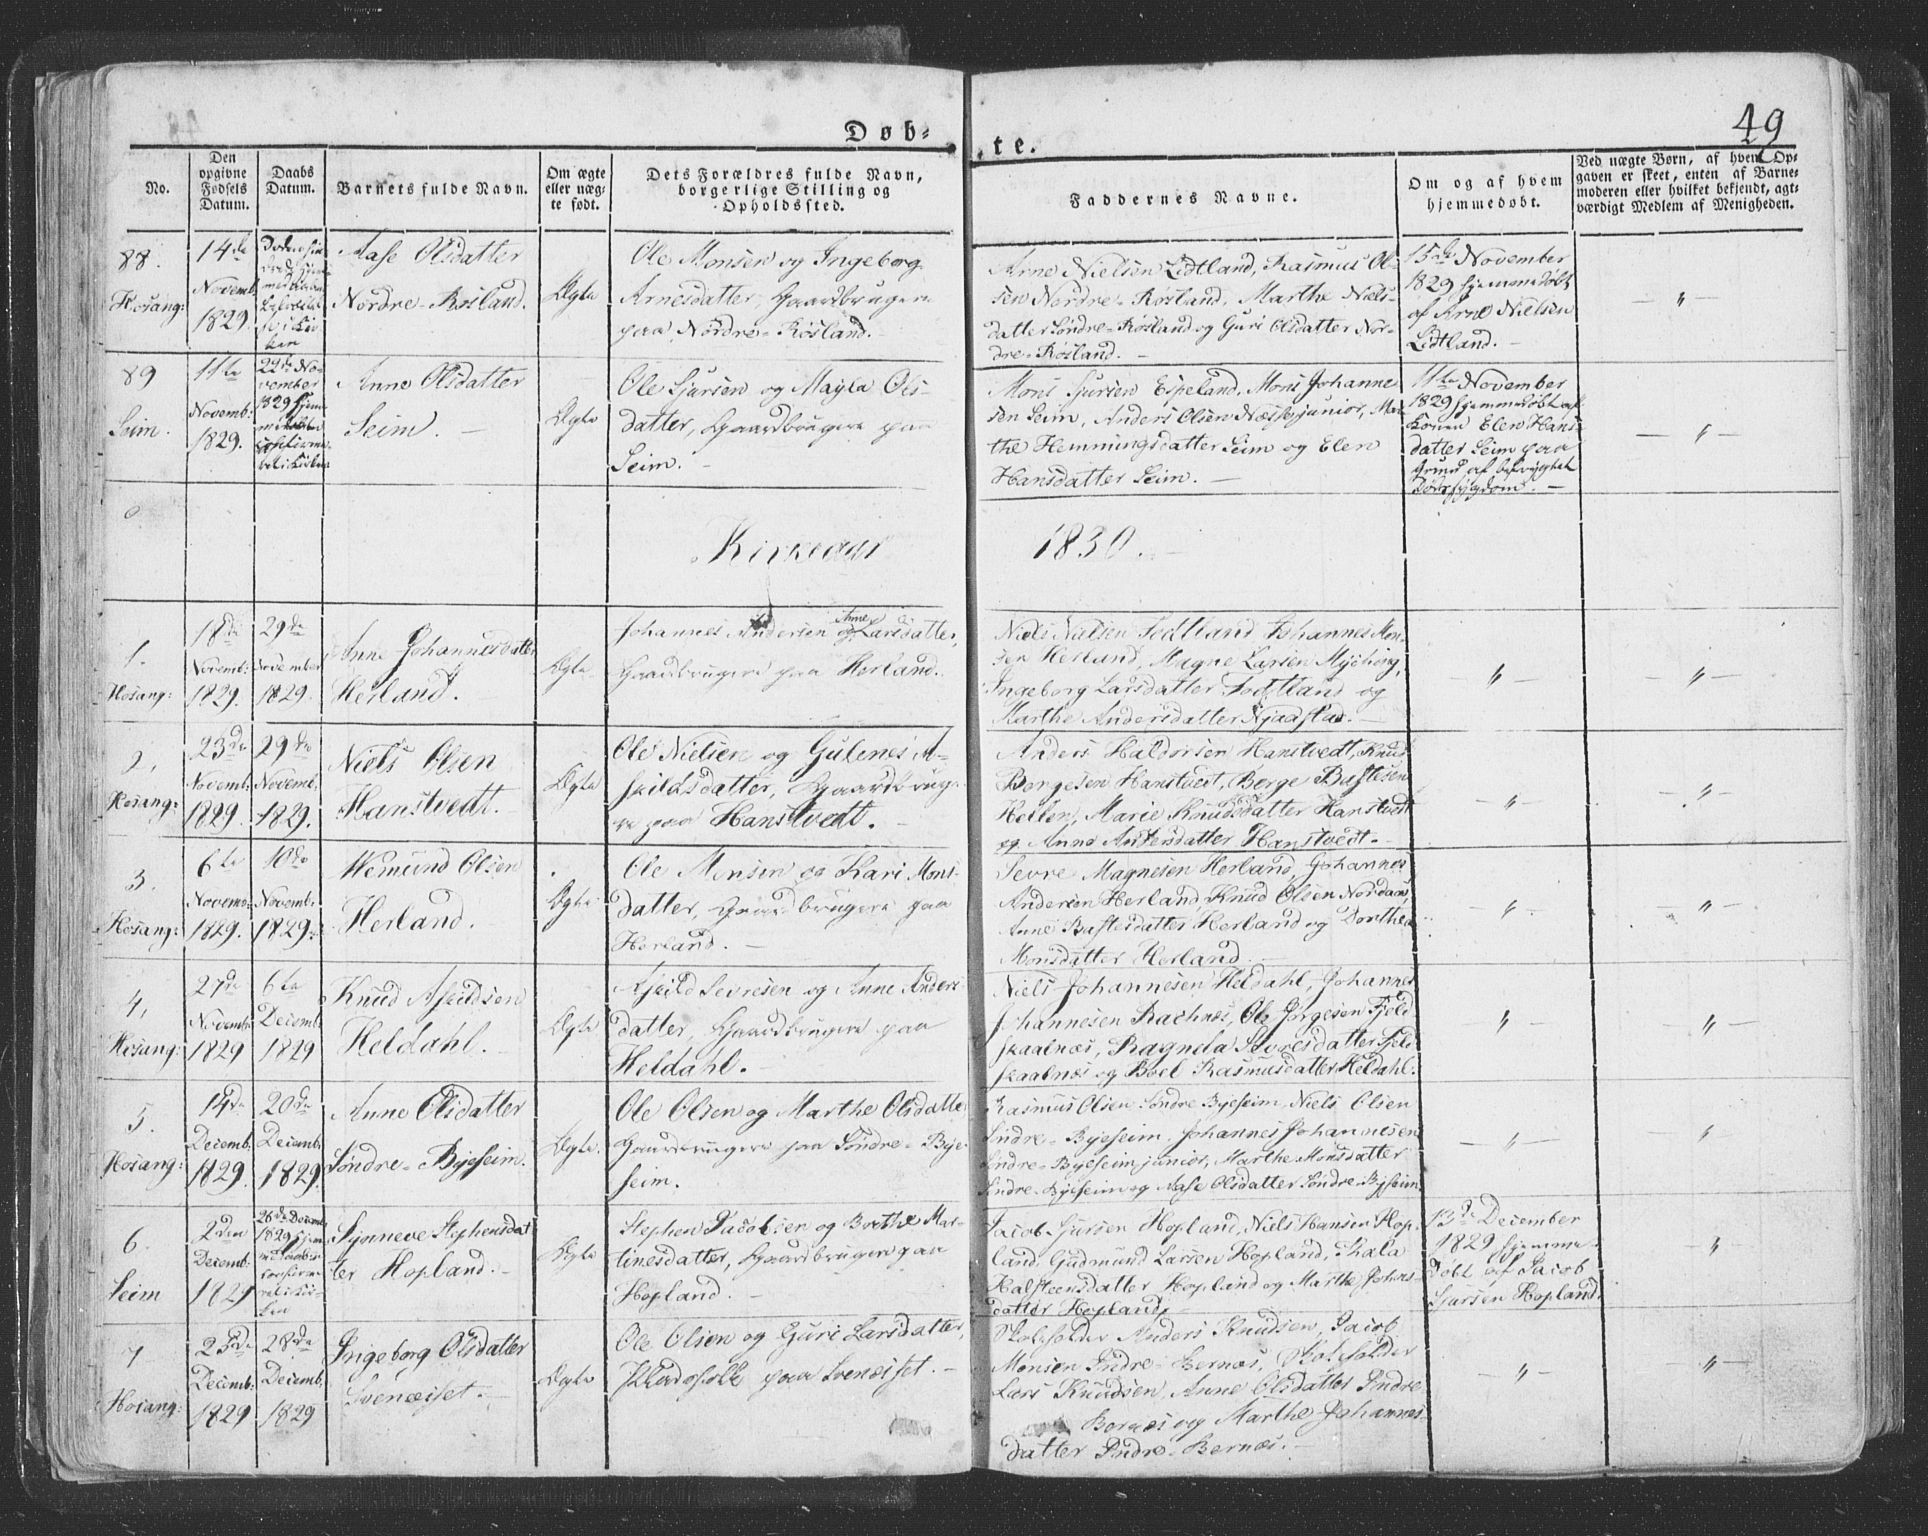 49
Døb-te.
No.
Den opgivne Fødsels Datum.
Daabs Datum.
Barnets fulde Navn.
Om ægte eller næg-te født.
Dets Forældres fulde Navn, borgerlige Stilling og Opholdssted.
Faddernes Navne.
Om og af hvem hjemmedøbt.
Ved nægte Børn, af hvem Op-
gaven er skeet, enten af Barne-
moderen eller hvilket bekjendt, agt-
værdigt Medlem af Menigheden.
88.
Hosang:
14de
Novemb:
1829.
Aase Olsdatter
Nordre-Røsland.
Ægte
Ole Monsen og Ingeborg
Arnesdatter, Gaardbrugere
paa Nordre-Røsland.
Arne Nielsen Lidtland, Rasmus Ol-
sen Nordre-Røsland, Marthe Niels-
datter Søndre-Røsland og Guri Olsdatter Nor-
dre-Røsland.
15de November
1829 hjemmedøbt
af Arne Nielsen
Lidtland.
— " —
89
Seim.
11te
Novemb:
1829.
22de No-
vember
1829
Anne Olsdatter
Seim.
Ægte
Ole Sjursen og Magla Ols-
datter, Gaardbrugere paa
Seim.
Mons Sjursen Espeland, Mons Johanne-
sen Seim, Anders Olsen Næsse junior, Mar-
the Hemmingsdatter Seim og Elen
Hansdatter Seim.
11te November
1829 hjemmedøbt af
Konen Elen Hans-
datter Seim paa
Grund af befrygtet
Dødssygdom.
— " —
Kirkeaar 1830.
1.
Hosang:
18de
Novemb:
1829.
29de
November
1829.
Anne Johannesdatter
Herland.
Ægte
Johannes Andersen og Anne Larsdatter,
Gaardbrugere paa Herland.
Niels Nielsen Fodtland, Johannes Mon-
sen Herland, Magne Larsen Myching,
Ingeborg Larsdatter Fodtland og
Marthe Andersdatter Njaastad.
— " —
— " —
2,
Hosang:
23de
Novemb:
1829.
29de
Novemb.
1829.
Niels Olsen
Hanstvedt.
Ægte
Ole Nielsen og Gulenes A-
skildsdatter, Gaardbruge-
re paa Hanstvedt.
Anders Haldorsen Hanstvedt, Knud
Børgesen Hanstvedt, Børge Bastesen
Hellen, Marie Knudsdatter Hanstvedt
og Anne Andersdatter Hanstvedt.
— " —
— " —
3.
Hosang:
6te
Novemb:
1829.
10de
Novemb:
1829.
Wemund Olsen
Herland.
Ægte
Ole Monsen og Kari Mons-
datter, Gaardbrugere paa
Herland.
Sevre Magnesen Herland, Johannes
Andersen Herland, Knud Olsen Nordaas,
Anne Bastesdatter Herland og Dorthea
Monsdatter Herland.
— " —
— " —
4,
Hosang:
27de
Novemb:
1829
6te
Decemb:
1829
Knud Askildsen
Heldahl.
Ægte
Askild Sevresen og Anne Anders-
datter, Gaardbrugere paa
Heldahl.
Niels Johannesen Heldahl, Johannes
Johannesen Raknes, Ole Jørgesen Fjeld-
skaalnæs, Ragnda Sevresdatter Fjeld-
skaalnæs og Boel Rasmusdatter Heldahl.
— " —
— " —
5.
Hosang:
14de
Decemb.
1829.
20de
Decemb.
1829.
Anne Olsdatter
Søndre-Byeseim.
Ægte.
Ole Olsen og Marthe Olsdatter
Gaardbrugere paa Søndre-Bye-
seim.
Rasmus Olsen Søndre Byeseim, Niels Olsen
Søndre-Byeseim, Johannes Johannesen
Søndre-Byeseim junior, Marthe Monsdatter
Søndre-Byeseim og Aase Olsdatter Søndre-Byseim.
— " —
— " —
6.
Seim
2den
Decemb:
1829
26de Decemb:
1829
Synneve Stephensdat-
ter Hopland.
Ægte
Stephen Jacobsen og Brithe Mar-
tinesdatter, Gaardbrugere paa
Hopland.
Jacob Sjursen Hopland, Niels Hansen Hop-
land, Gudmund Larsen Hopland, Skala
Halsteensdatter Hopland og Marthe Johans-
datter Hopland.
13de December
1829 hjemme-
døbt af Jacob
Sjursen Hopland.
"
7
Hosang:
23de
Decemb:
1829
28de
Decemb.
1829
Ingeborg Olsdatter
Svenæiset.
Ægte
Ole Olsen og Guri Larsdatter,
Pladsfolk paa Svenæiset.
Skoleholder Anders Knudsen, Jacob
Monsen Indre-Bernæs, Skoleholder
Lars Knudsen, Anne Olsdatter Indre
Bernæs og Marthe Johannes-
datter Indre-Bernæs.
— " —
— " —